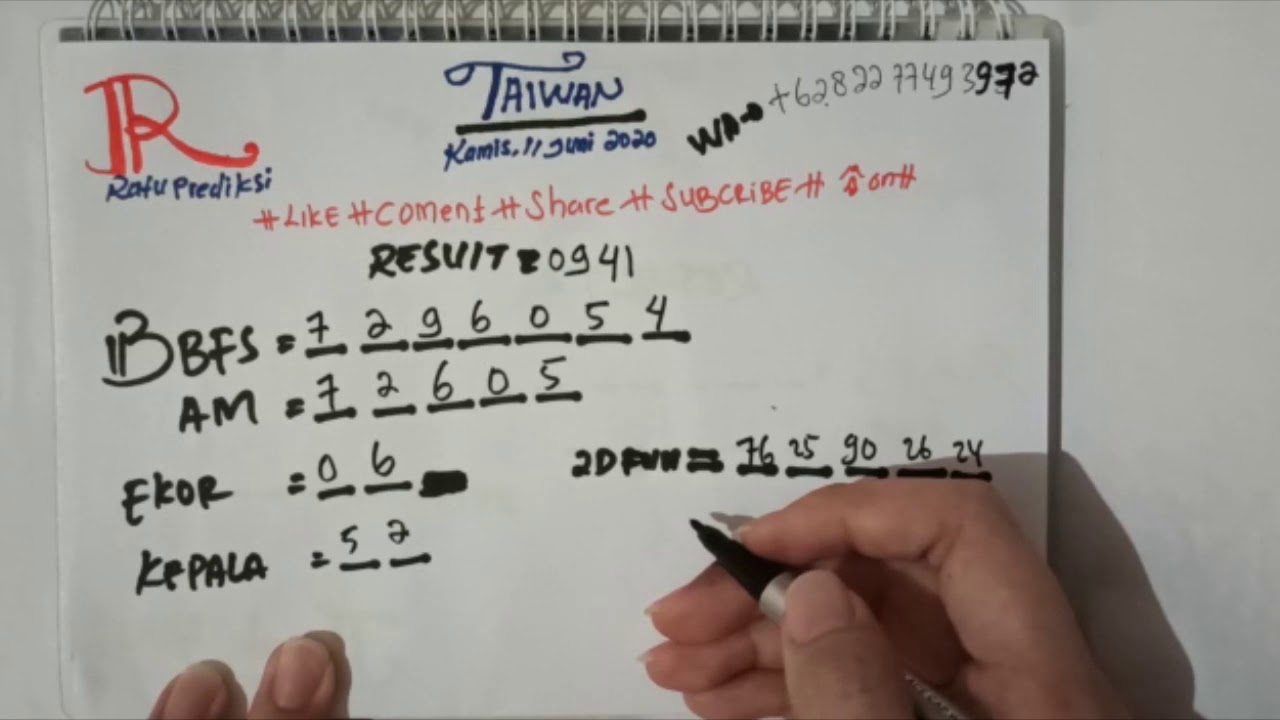 R
TAIWAN
Kamis, 11 Juni 2020
WA → +6282277493972
Ratu Prediksi
#LIKE #Coment #Share #SUBCRIBE # on#
RESULT = 0941
BBFS = 7 2 9 6 0 5 4
AM = 7 2 6 0 5
2D FUN = 76 25 90 26 24
EKOR = 0 6
KEPALA = 5 2